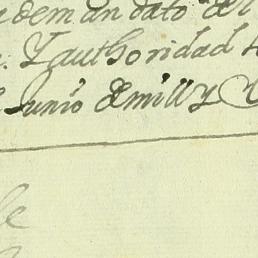 ademandato del
Y authoridad
Junio de mill y
le